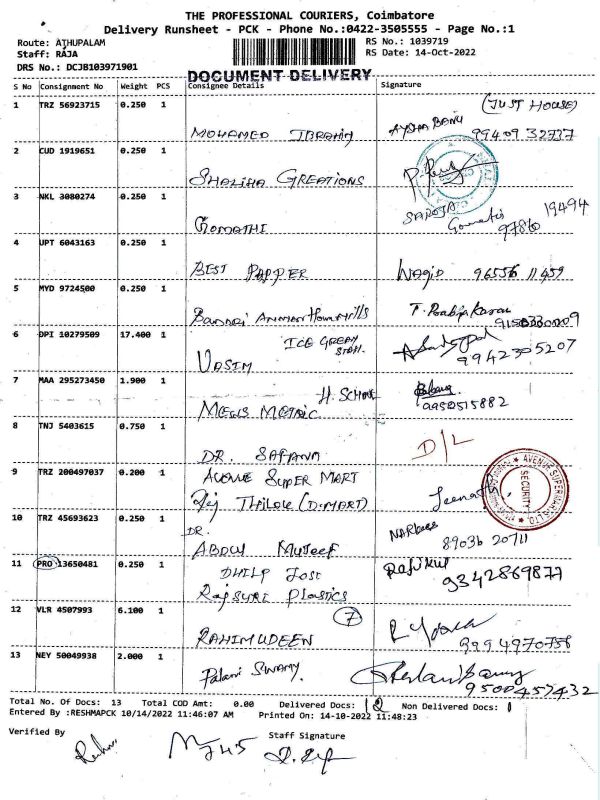 THE PROFESSIONAL COURIERS, Coimbatore
Delivery Runsheet - PCK - Phone No.:0422-3505555 - Page No.:1
Route: ATHUPALAM
RS No.: 1039719
Staff: RAJA
RS Date: 14-Oct-2022
DRS No.: DCJB103971901
DOCUMENT DELIVERY
S No Consignment No Weight PCS Consignee Details Signature
1 TRZ 56923715 0.250 1 MOHAMED IBRAHIM AYSHA BANU (JUST HOUSE) 99409 32737
2 CUD 1919651 0.250 1 SHALIHA CREATIONS
3 NKL 3080274 0.250 1 GOMATHI SAROJA 9786 19494
4 UPT 6043163 0.250 1 BEST PAPPER Wagid 96556 11459
5 MYD 9724500 0.250 1
6 DPI 10279509 17.400 1 VASIM ICE CREAM 9942305207
7 MAA 295273450 1.900 1 MEWS METRIC H. SCHOOL 9950515882
8 TNJ 5403615 0.750 1 DR. SAFANA D/L
9 TRZ 200497037 0.200 1 AVENUE SUPER MART
THILAK (D.MART)
AVENUE SUPERMARTS LTD.
SECURITY
10 TRZ 45693623 0.250 1 DR. ABDUL MUJEEF 89036 20711
11 PRO 13650481 0.250 1 DHILP JOSE
Rajsure Plastics 9342869877
12 VLR 4507993 6.100 1 RAHIMUDEEN 7 9994970758
13 NEY 50049938 2.000 1 Palani Swamy 9500457432
Total No. Of Docs: 13 Total COD Amt: 0.00 Delivered Docs: 12 Non Delivered Docs: 1
Entered By :RESHMAPCK 10/14/2022 11:46:07 AM Printed On: 14-10-2022 11:48:23
Verified By Staff Signature